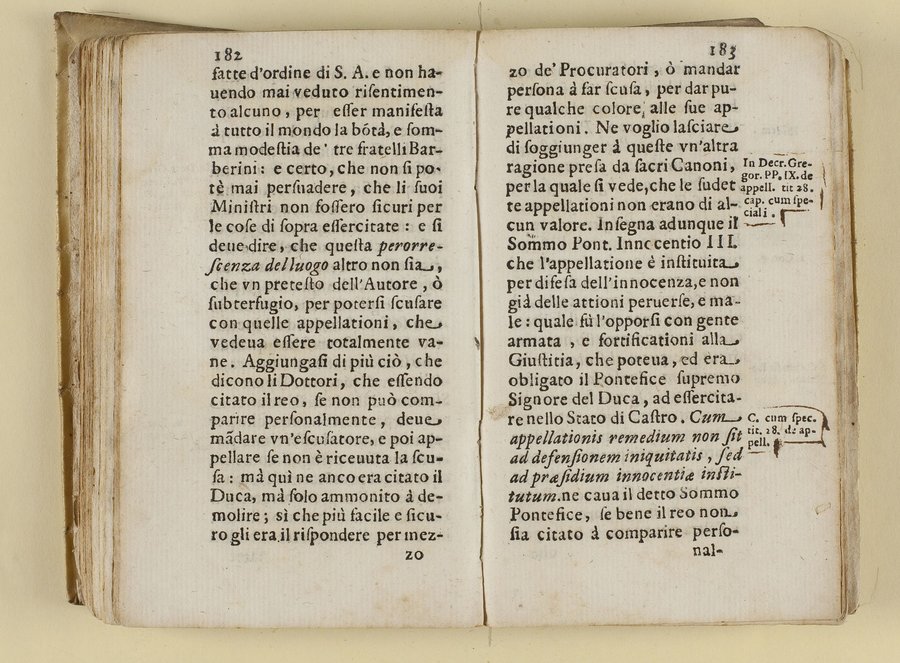 182
fatte d'ordine di S. A. e non ha-
uendo mai veduto riſentimen-
to alcuno, per eſſer manifeſta
à tutto il mondo la bõtà, e ſom-
ma modeſtia de' tre fratelli Bar-
berini: e certo, che non ſi po-
tè mai perſuadere, che li ſuoi
Miniſtri non foſſero ſicuri per
le coſe di ſopra eſſercitate: e ſi
deue dire, che queſta perorre-
ſcenza del luogo altro non ſia,
che vn preteſto dell'Autore, ò
ſubterfugio, per poterſi ſcuſare
con quelle appellationi, che
vedeua eſſere totalmente va-
ne. Aggiungaſi di più ciò, che
dicono li Dottori, che eſſendo
citato il reo, ſe non può com-
parire perſonalmente, deue
mãdare vn'eſcuſatore, e poi ap-
pellare ſe non è riceuuta la ſcu-
ſa: mà quì ne anco era citato il
Duca, mà ſolo ammonito à de-
molire; sì che più facile e ſicu-
ro gli era il riſpondere per mez-
zo
183
zo de' Procuratori, ò mandar
perſona à far ſcuſa, per dar pu-
re qualche colore, alle ſue ap-
pellationi. Ne voglio laſciare
di ſoggiunger à queſte vn'altra
ragione preſa da ſacri Canoni,
per la quale ſi vede, che le ſudet
te appellationi non erano di al-
cun valore. Inſegna adunque il
Sommo Pont. Innocentio III.
che l'appellatione è inſtituita
per difeſa dell'innocenza, e non
già delle attioni peruerſe, e ma-
le: quale fù l'opporſi con gente
armata, e fortificationi alla
Giuſtitia, che poteua, ed era
obligato il Pontefice ſupremo
Signore del Duca, ad eſſercita-
re nello Stato di Caſtro. Cum
appellationis remedium non ſit
ad defenſionem iniquitatis, ſed
ad præſidium innocentiæ inſti-
tutum. ne caua il detto Sommo
Pontefice, ſe bene il reo non
ſia citato à comparire perſo-
nal-
In Decr. Gre-
gor. PP. IX. de
appell. tit 28.
cap. cum ſpe-
ciali.
C. cum ſpec.
tit. 28. de ap-
pell.